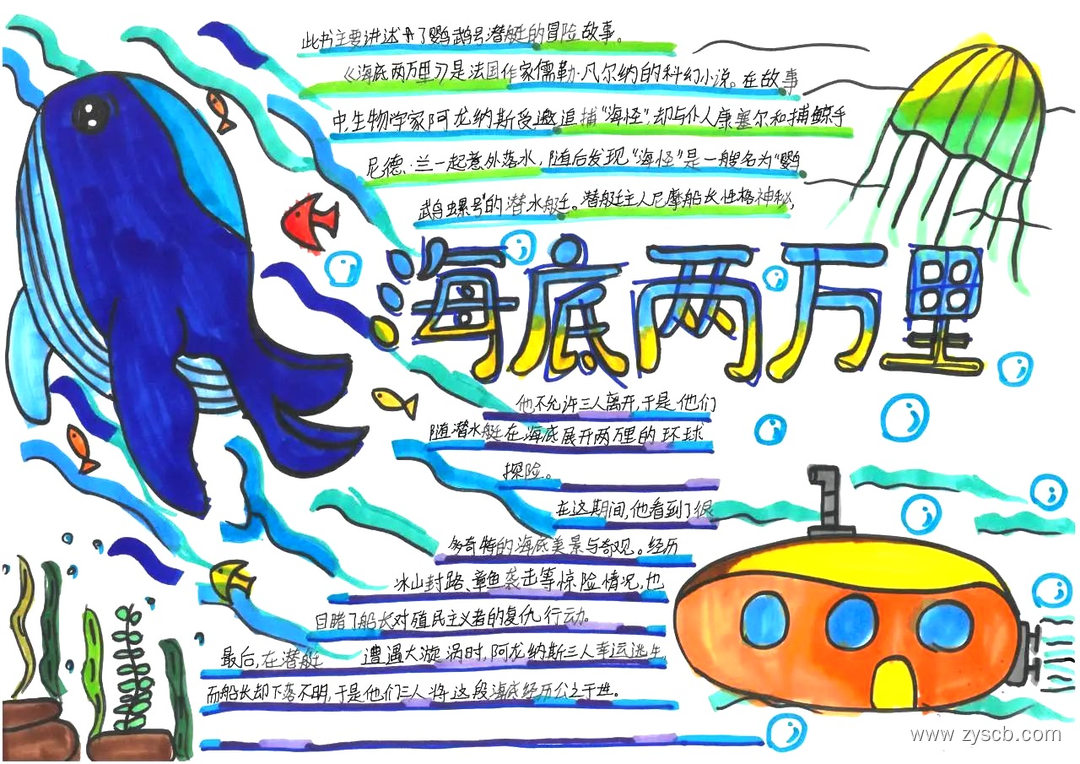 此书主要讲述了鹦鹉号潜艇的冒险故事。
《海底两万里》是法国作家儒勒·凡尔纳的科幻小说。在故事
中,生物学家阿龙纳斯受邀追捕"海怪",却与仆人康塞尔和捕鲸手
尼德·兰一起意外落水,随后发现"海怪"是一艘名为"鹦
鹉螺号"的潜水艇。潜艇主人尼摩船长性格神秘,
海底两万里
他不允许三人离开,于是他们
随潜水艇在海底展开两万里的环球
探险。
在这期间,他看到了很
多奇特的海底美景与奇观。经历
冰山封路、章鱼袭击等惊险情况,也
目睹了船长对殖民主义者的复仇行动。
最后,在潜艇 遭遇大漩涡时,阿龙纳斯三人幸运逃生
而船长却下落不明,于是他们三人将这段海底经历公之于世。
www.zyscb.com